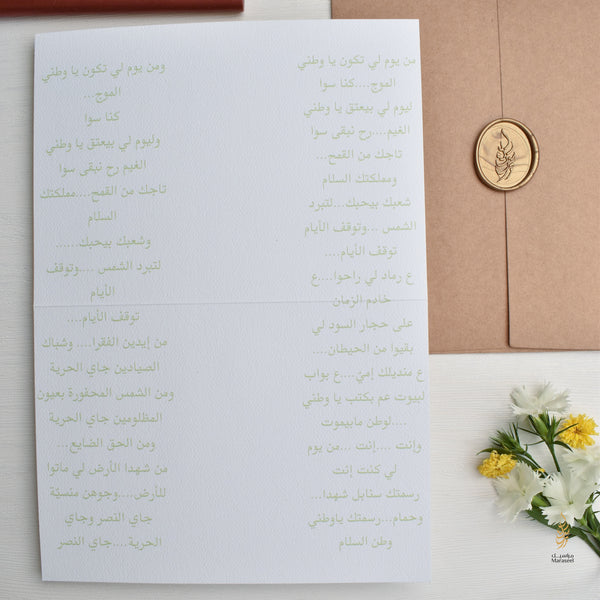 من يوم لي تكون يا وطني
الموج....كنا سوا
ليوم لي بيعتق يا وطني
الغيم....رح نبقى سوا
تاجك من القمح...
ومملكتك السلام
شعبك بيحبك...لتبرد
الشمس ...وتوقف الأيام
توقف الأيام....
ع رماد لي راحوا....ع
خادم الزمان
على حجار السود لي
بقيوا من الحيطان....
ع منديلك إمي....ع بواب
لبيوت عم بكتب يا وطني
....لوطن مابيموت
وإنت ....إنت ...من يوم
لي كنت إنت
رسمتك سنابل شهدا...
وحمام...رسمتك ياوطني
وطن السلام
ومن يوم لي تكون يا وطني
الموج...
كنا سوا
وليوم لي بيعتق يا وطني
الغيم رح نبقى سوا
تاجك من القمح....مملكتك
السلام
وشعبك بيحبك......
لتبرد الشمس ....وتوقف
الأيام
توقف الأيام....
من إيدين الفقرا.... وشباك
الصيادين جاي الحرية
ومن الشمس المحفورة بعيون
المظلومين جاي الحرية
ومن الحق الضايع...
من شهدا الأرض لي ماتوا
للأرض....وجوهن منسيّة
جاي النصر وجاي
الحرية....جاي النصر
مراسيـل
Maraseel